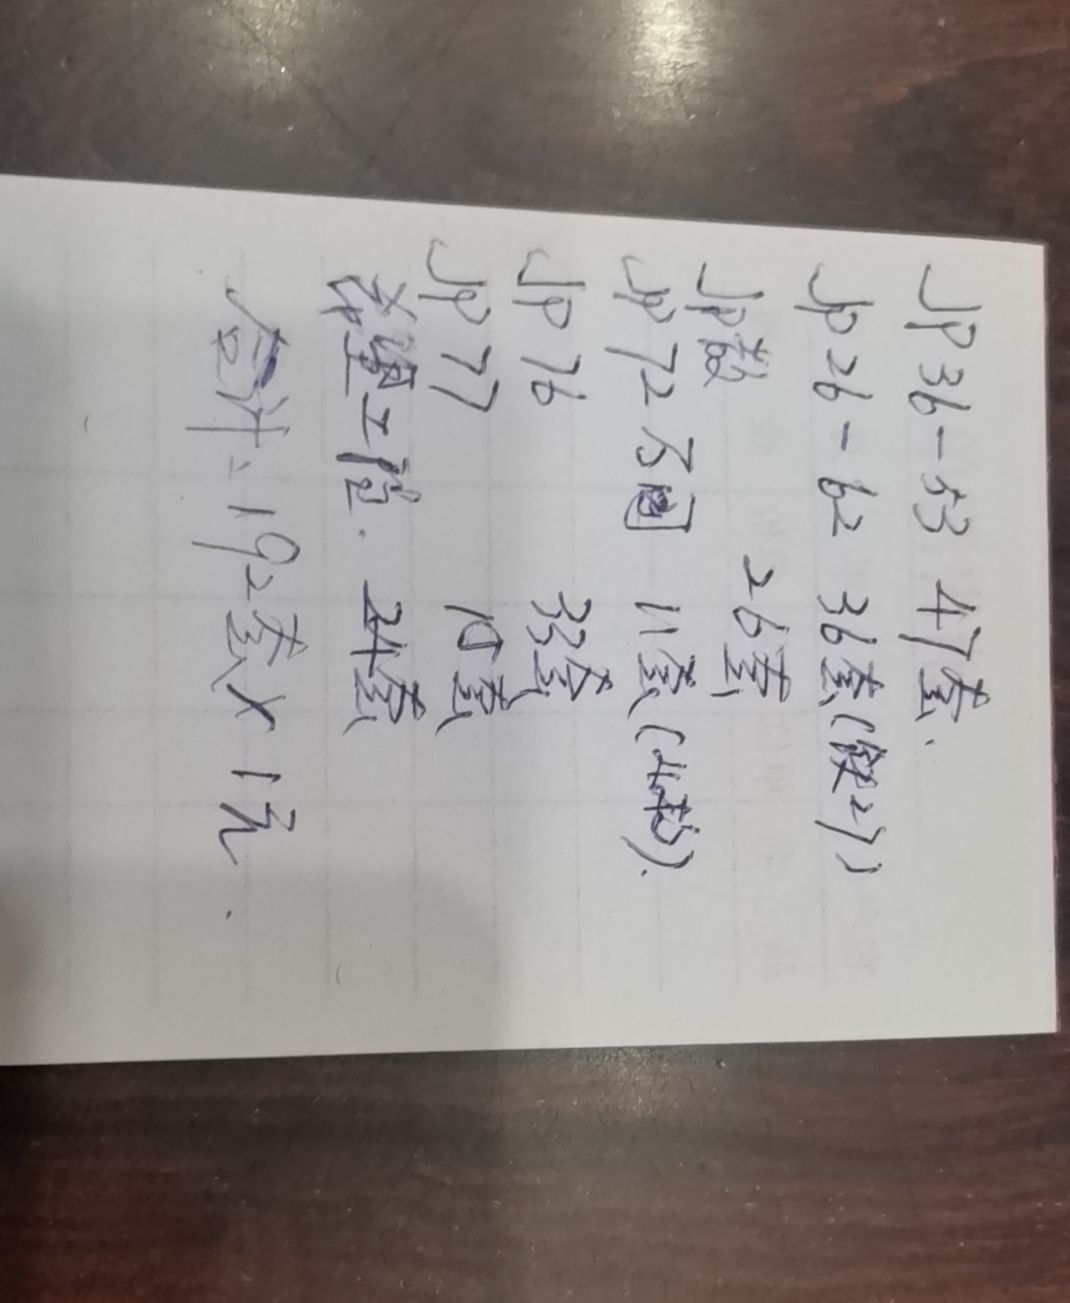 JP36-53 47套.
JP26-62 36套(缺2个)
JP 26套
JP72 11套
JP76 33套
JP77 15套
工位. 24套
合计: 192套×1元.